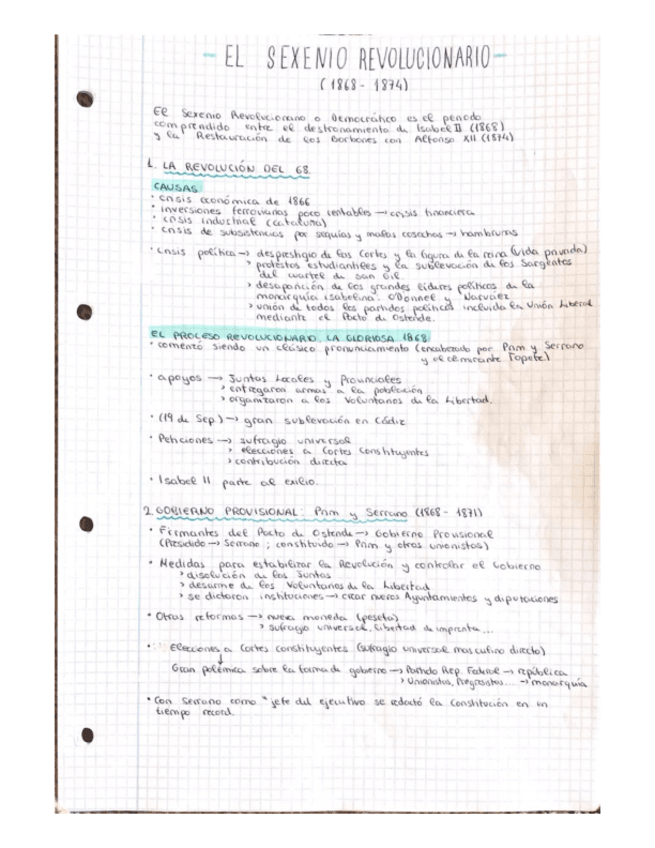 - EL SEXENIO REVOLUCIONARIO -
(1868 - 1874)
El Sexenio Revolucionario o Democrático es el periodo
comprendido entre el destronamiento de Isabel II (1868)
y la Restauración de los Borbones con Alfonso XII (1874)
1. LA REVOLUCIÓN DEL 68.
CAUSAS
· crisis económica de 1866
· inversiones ferroviarias poco rentables → crisis financiera
· crisis industrial (Cataluña)
· crisis de subsistencias por sequías y malas cosechas → hambrunas
· crisis política → desprestigio de las Cortes y la figura de la reina (vida privada)
> protestas estudiantiles y la sublevación de los Sargentos
del cuartel de San Gil.
> desaparición de los grandes líderes políticos de la
monarquía isabelina: O'Donnel y Narvaez
> unión de todos los partidos políticos incluida la Unión Liberal
mediante el Pacto de Ostende.
EL PROCESO REVOLUCIONARIO. LA GLORIOSA 1868
· comenzó siendo un clásico pronunciamiento (encabezado por Prim y Serrano
y el almirante Topete)
· apoyos → Juntas Locales y Provinciales
> entregaron armas a la población
> organizaron a los Voluntarios de la Libertad.
· (19 de Sep.) → gran sublevación en Cádiz
· Peticiones → sufragio universal
> elecciones a Cortes Constituyentes
> contribución directa
· Isabel II parte al exilio.
2. GOBIERNO PROVISIONAL: Prim y Serrano (1868 - 1871)
· Firmantes del Pacto de Ostende → Gobierno Provisional
(Presidido → Serrano ; constituido → Prim y otros unionistas)
· Medidas para estabilizar la Revolución y controlar el Gobierno
> disolución de las Juntas
> desarme de los Voluntarios de la Libertad
> se dictaron instituciones → crear nuevos Ayuntamientos y diputaciones
· Otras reformas → nueva moneda (peseta)
> sufragio universal, libertad de imprenta...
· Elecciones a Cortes constituyentes (sufragio universal masculino directo)
↓
Gran polémica sobre la forma de gobierno → Partido Rep. Federal → república
> Unionistas, Progresistas... → monarquía
· Con Serrano como "jefe del ejecutivo se redactó la Constitución en un
tiempo record.